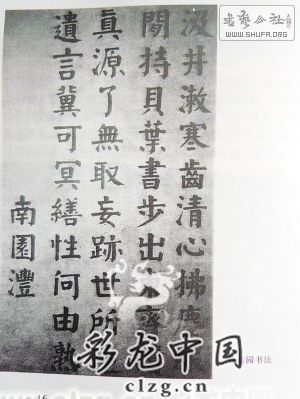 书艺公社
WWW.SHUFA.ORG
汲井漱寒齒清心拂
閒持貝葉書步出
真源了無取妄跡世所
遺言冀可冥繕性何由孰
南園灃
园书法
彩龙中国
clzg.cn
16